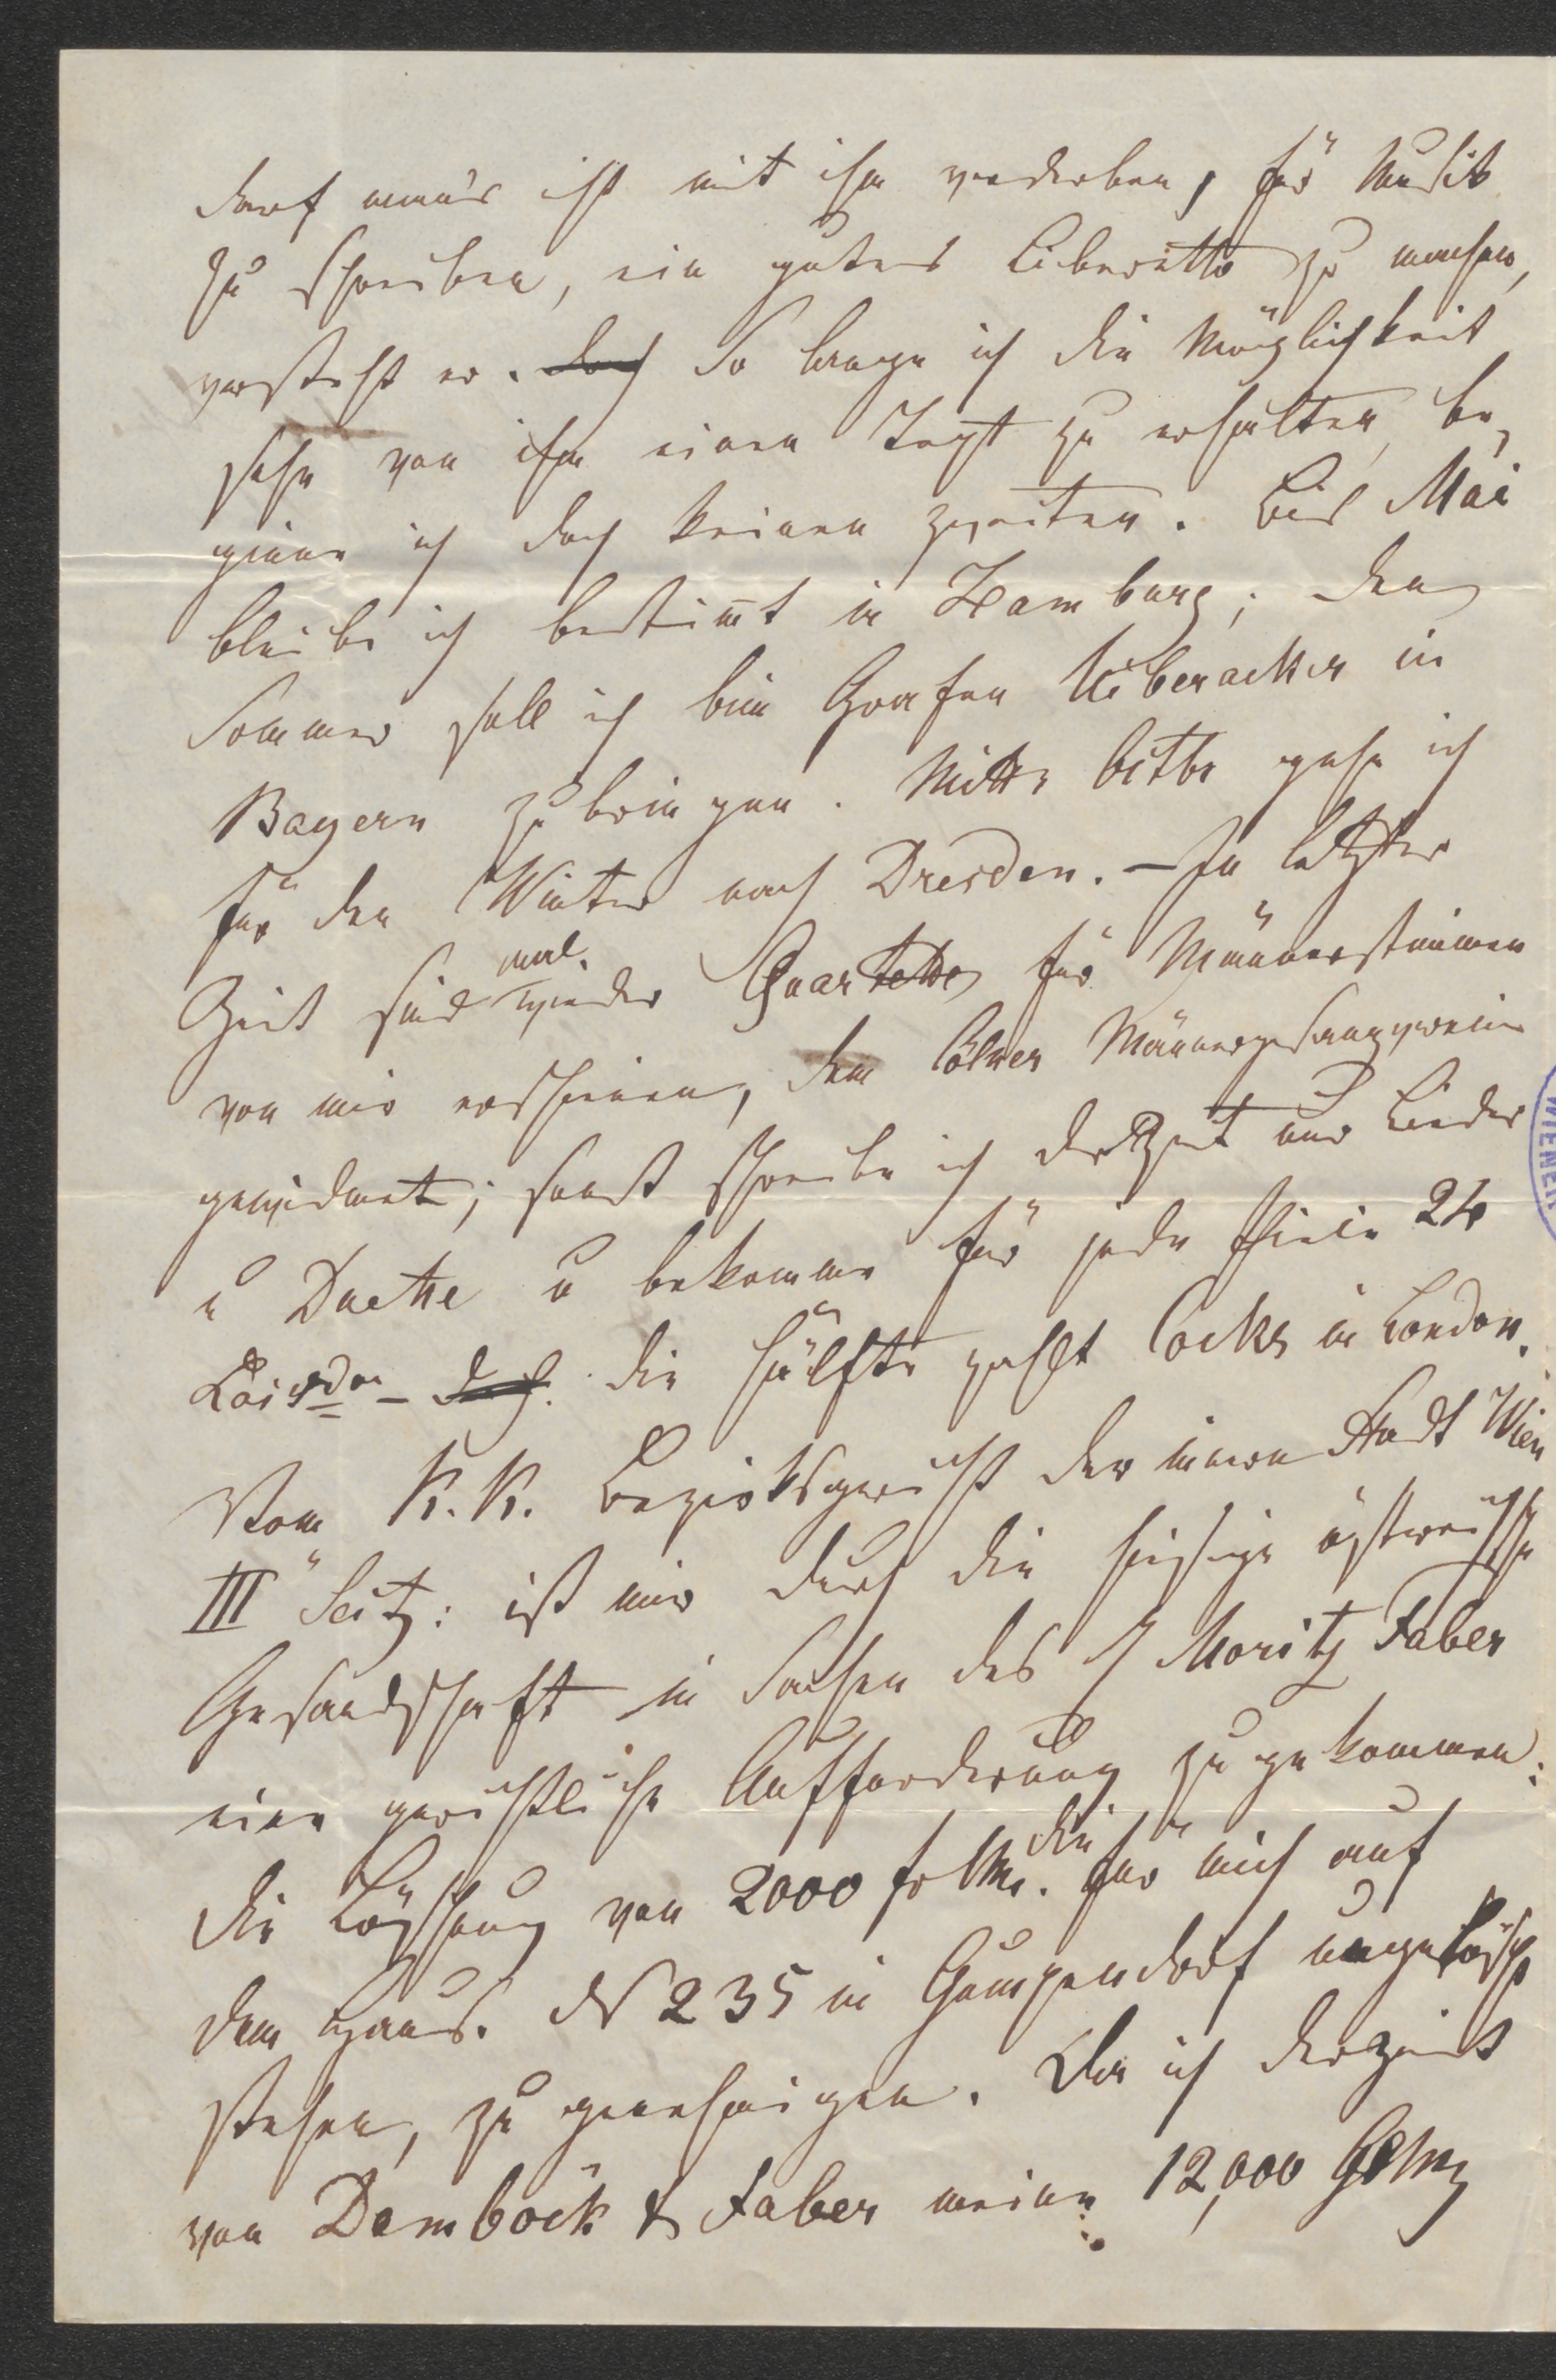 darf man's ist mit ihm verderben, für Musik
zu schreiben, ein gutes Liberetto zu machen,
versteht er. doch So lange ich die Möglichkeit
sehe von ihm einen Text zu erhalten, be¬
ginne ich doch keinen zweiten. Bis Mai
bleibe ich bestimt in Hamburg; den
Sommer soll ich beim Grafen Uiberacker in
Bayern zubringen. Mitte Octbr gehe ich
für den Winter nach Dresden. – In letzter
Zeit sind wieder mal. Quartette für Männerstimmen
von mir erschienen, dem Cölner Männergesangverein
gewidmet; sonst schreibe ich derzeit nur Lieder
u Duette u bekomme für jede Piece 24
Loisdor – d. h. die Hälfte zahlt Cocks in London.
Vom K. K. Bezirksgericht der innern Stadt Wien
III Sectz: ist mir durch die hiesige östreichische
Gesandschaft in Sachen des H Moritz Faber
eine gerichtliche Aufforderung zugekommen:
die Löschung von 2000 f CMz. die für mich auf
dem Haus. No 235 in Gumpendorf ungelöscht
stehen, zu genehmigen. Da ich derzeit
von Demböck & Faber meine 12,000 G CMz
WIENER